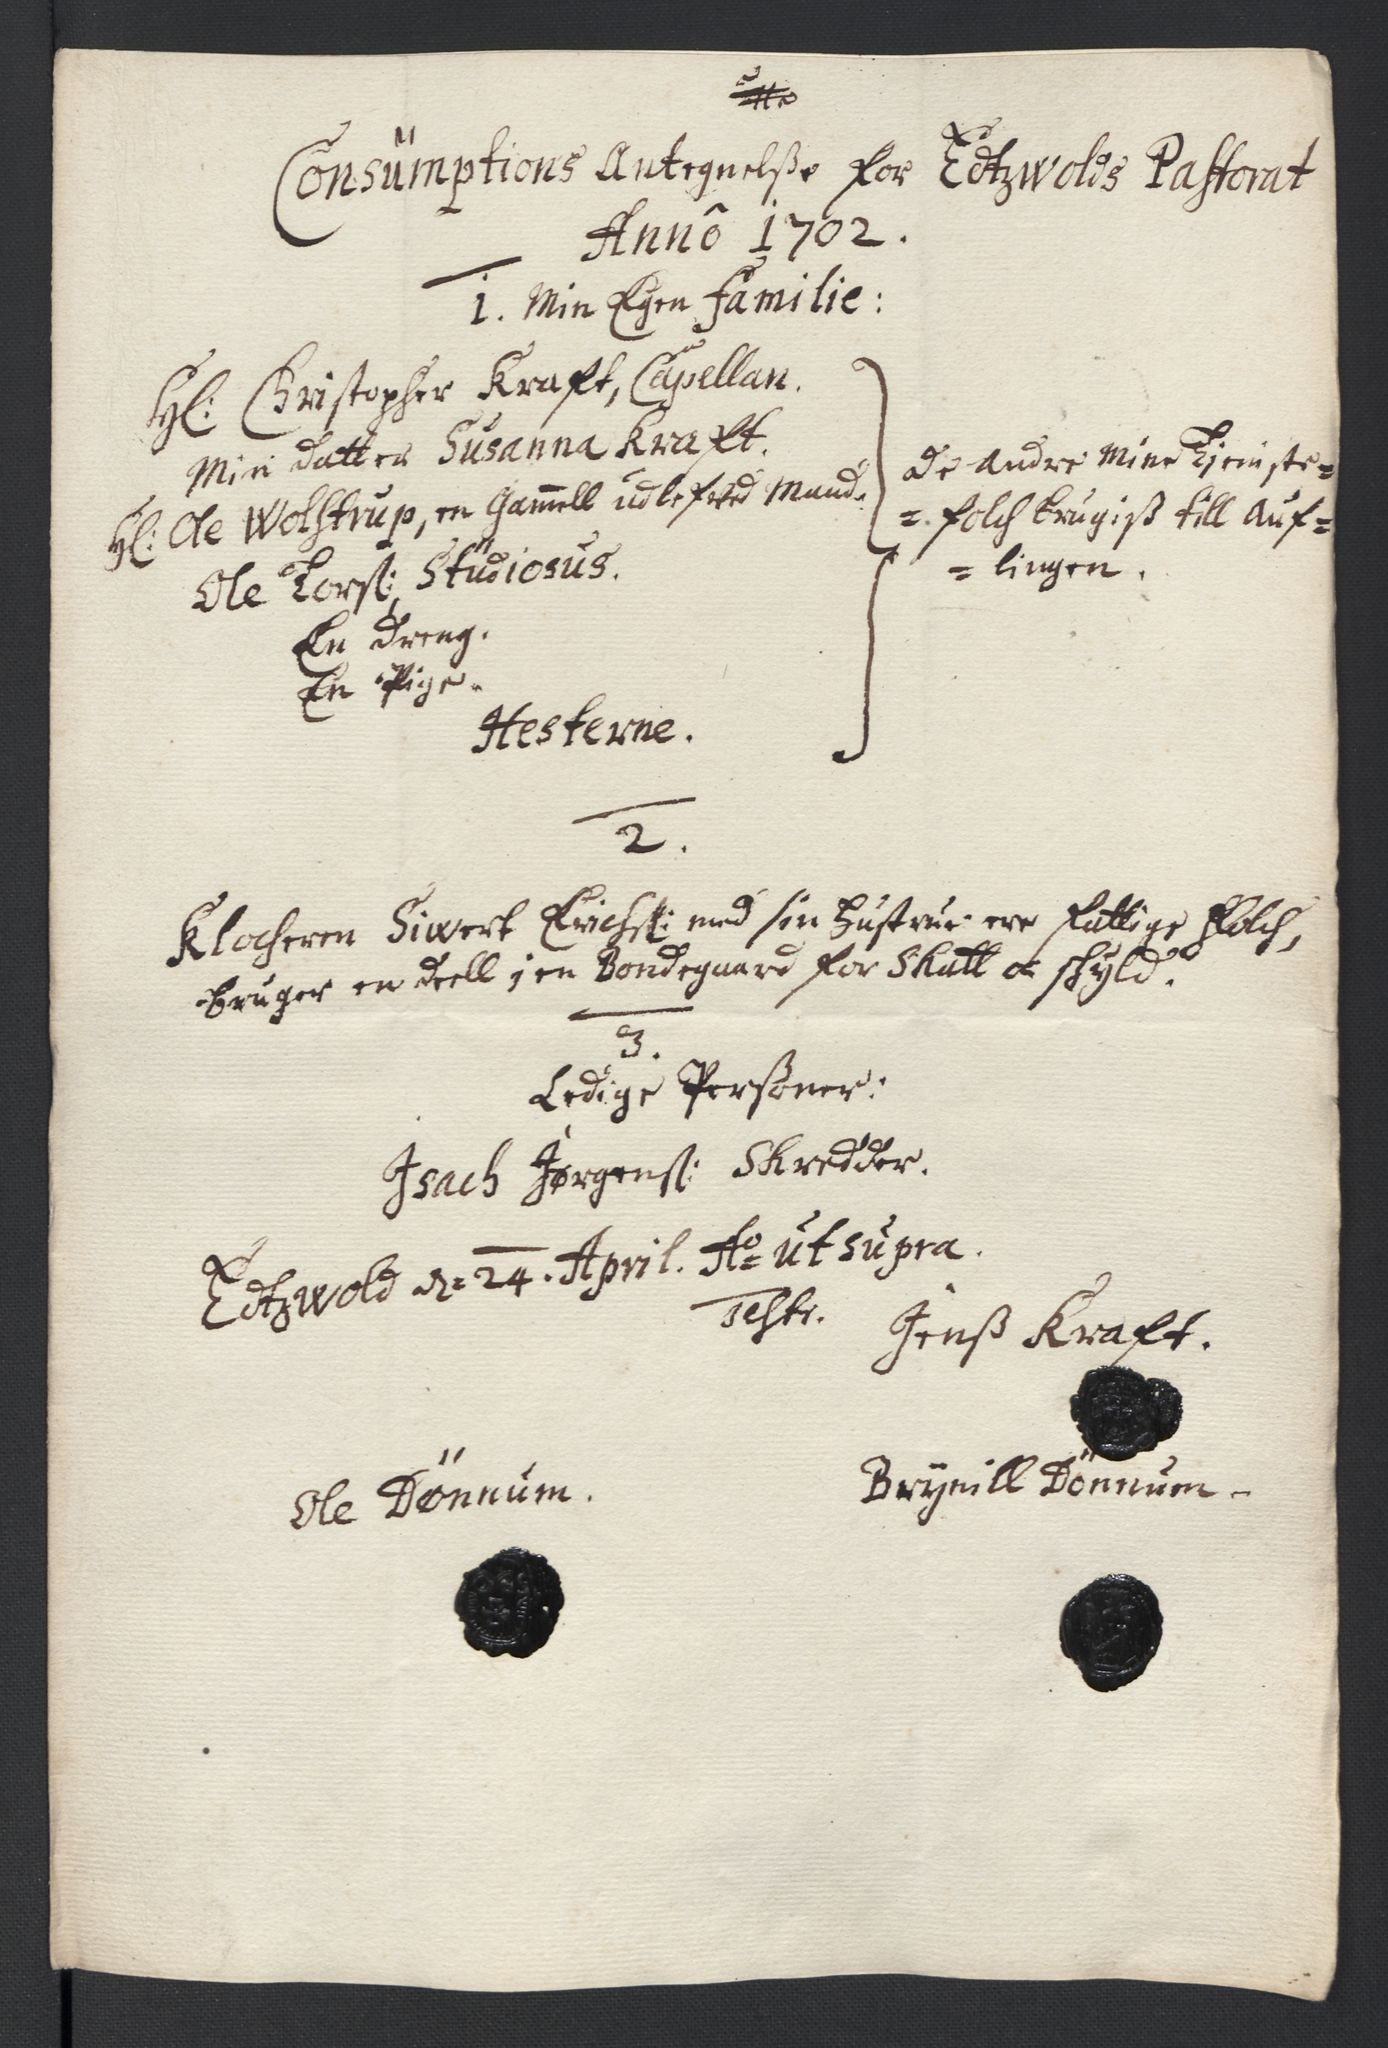 Consümptions Antegnelße for Edtzwolds Pastorat
Annô 1702.
1. Min Egen familie:
Hl: Christopher Kraft, Capellan.
Min datter Susanna Kraft.
Hl: Ole Wolstrup, en Gam̄ell udlefved Mand.
Ole Torß: Stüdiosus.
En dreng.
En Pige.
Hesterne.
De andre mine Tienste=
=folch brugiß till Auf=
=lingen.
2.
Klocheren Siwert Erichß: med sin Hustrue ere fattige folch,
bruger en deell i en Bondegaard for Skatt oc schyld.
3.
Ledige Persőner:
Isach Jørgenß: Skredder.
Edtzwold dn 24. April. Ao ut supra.
Jenß Kraft.
Ole Dönnum.
Brÿnill Dönnum.